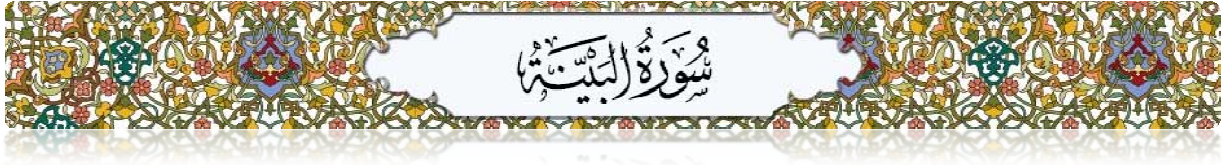 سُورَةُ البَيِّنَةُ